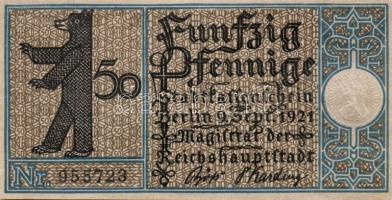 Funfzig
50 Pfennige
Stadtkassenschein
Berlin 9. Sept. 1921
Magistrat der
Reichshauptstadt
Nr. 955723